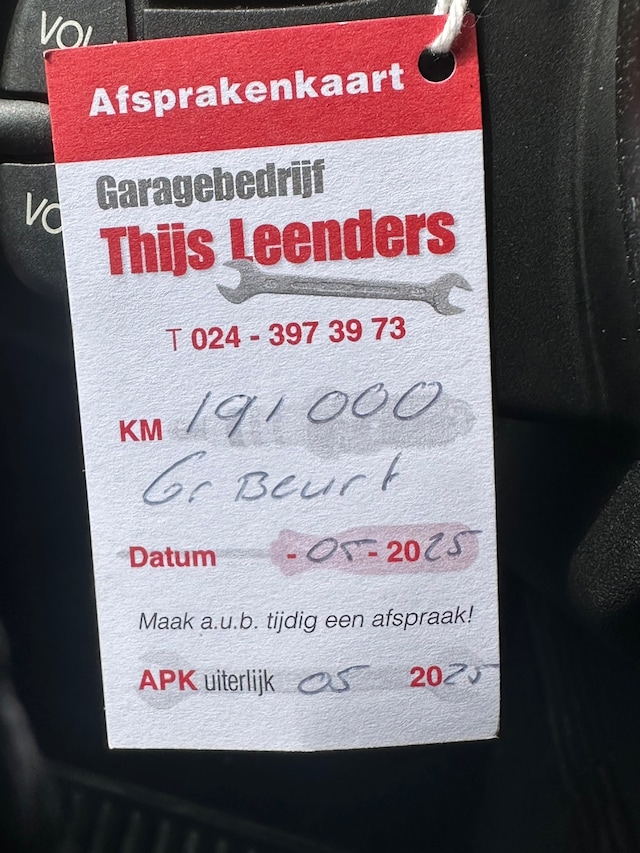 VOL
VO
Afsprakenkaart
Garagebedrijf
Thijs Leenders
T 024 - 397 39 73
KM 191000
Gr Beurt
Datum - 05 - 2025
Maak a.u.b. tijdig een afspraak!
APK uiterlijk 05 2025